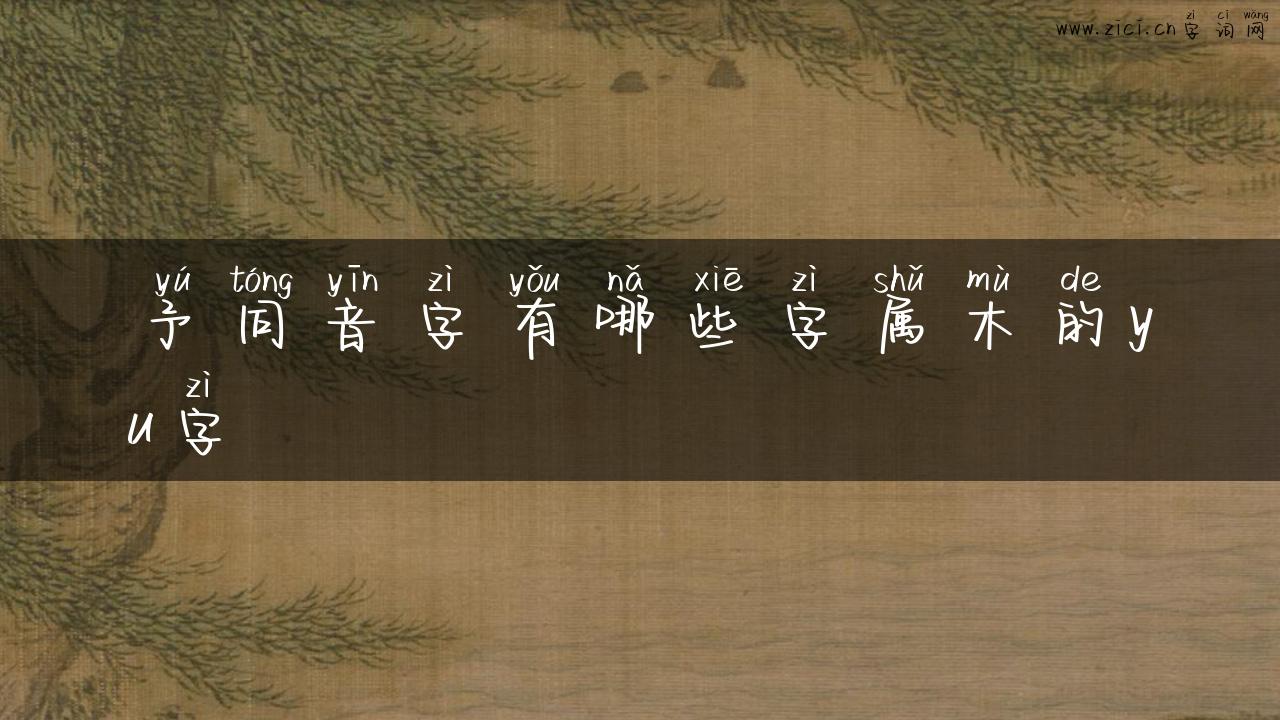 zì cí wǎng
www.zici.cn字词网
yú tóng yīn zì yǒu nǎ xiē zì shǔ mù de
予同音字有哪些字属木的y
zì
u字